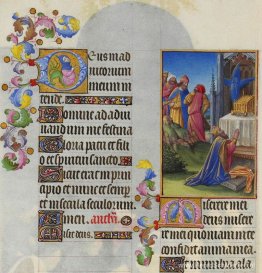 Deus in ad
iutorium
meum in
tende.
Domine ad adiu
uandum me festina
Gloria patri et fili
o et spiritui sancto
Sicut erat in prin
cipio et nunc et semp
et in secula seculorum
amen.
Miserere mei
deus misere
re mei quoniam in te
confidit anima mea.
Et in umbra ala